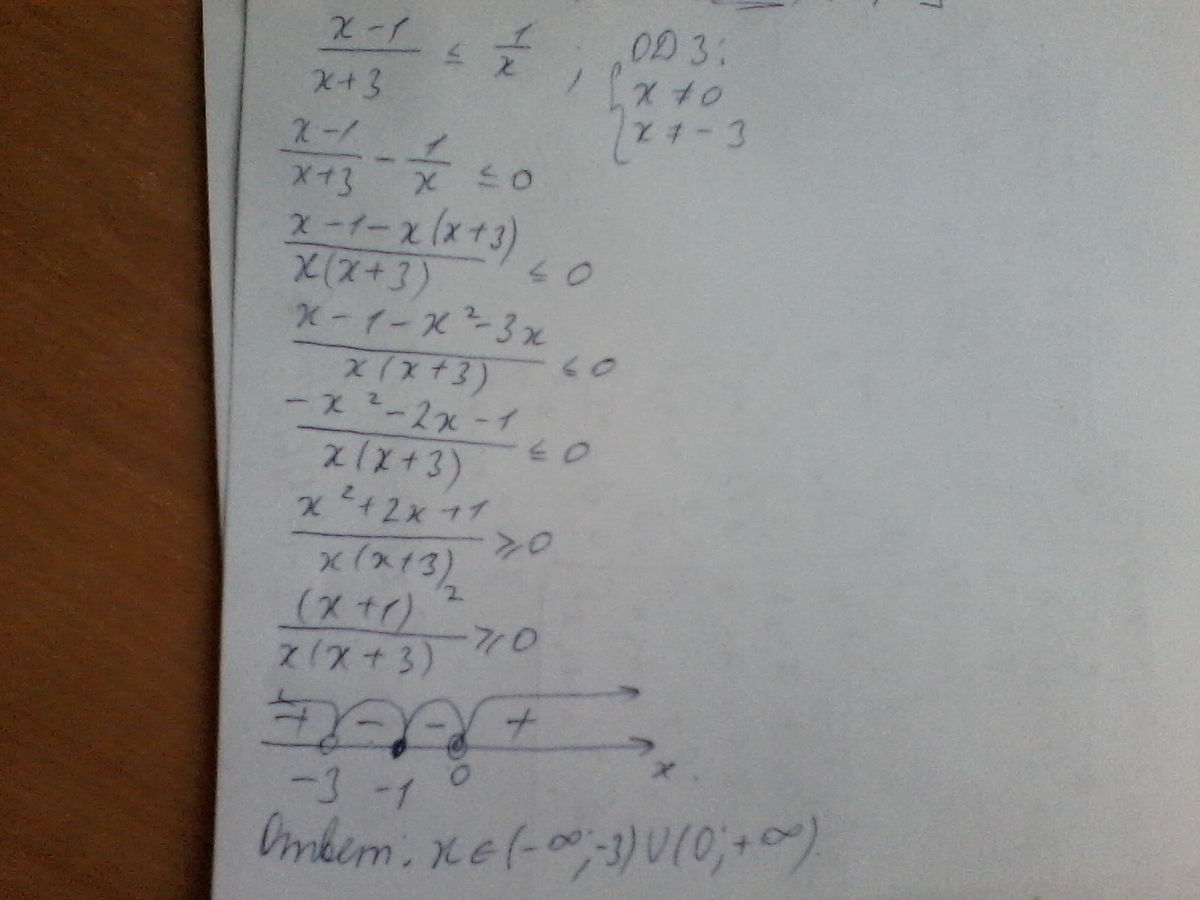 (x-1)/(x+3) ≤ 1/x ; ОДЗ:
{ x ≠ 0
{ x ≠ -3
(x-1)/(x+3) - 1/x ≤ 0
(x-1-x(x+3))/(x(x+3)) ≤ 0
(x-1-x²-3x)/(x(x+3)) ≤ 0
(-x²-2x-1)/(x(x+3)) ≤ 0
(x²+2x+1)/(x(x+3)) ≥ 0
(x+1)²/(x(x+3)) ≥ 0
+ - - +
-3 -1 0 x
Ответ: x ∈ (-∞;-3) U (0;+∞).